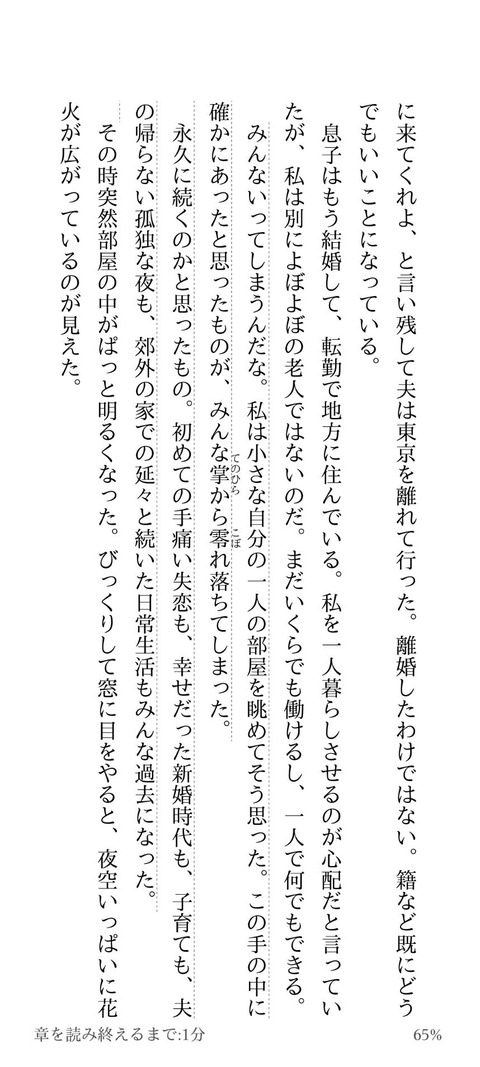 に来てくれよ、と言い残して夫は東京を離れて行った。離婚したわけではない。籍など既にどう
でもいいことになっている。
息子はもう結婚して、転勤で地方に住んでいる。私を一人暮らしさせるのが心配だと言ってい
たが、私は別によぼよぼの老人ではないのだ。まだいくらでも働けるし、一人で何でもできる。
みんないってしまうんだな。私は小さな自分の一人の部屋を眺めてそう思った。この手の中に
確かにあったと思ったものが、みんな掌から零れ落ちてしまった。
てのひら
こぼ
永久に続くのかと思ったもの。初めての手痛い失恋も、幸せだった新婚時代も、子育ても、夫
の帰らない孤独な夜も、郊外の家での延々と続いた日常生活もみんな過去になった。
その時突然部屋の中がぱっと明るくなった。びっくりして窓に目をやると、夜空いっぱいに花
火が広がっているのが見えた。
章を読み終えるまで:1分
65%